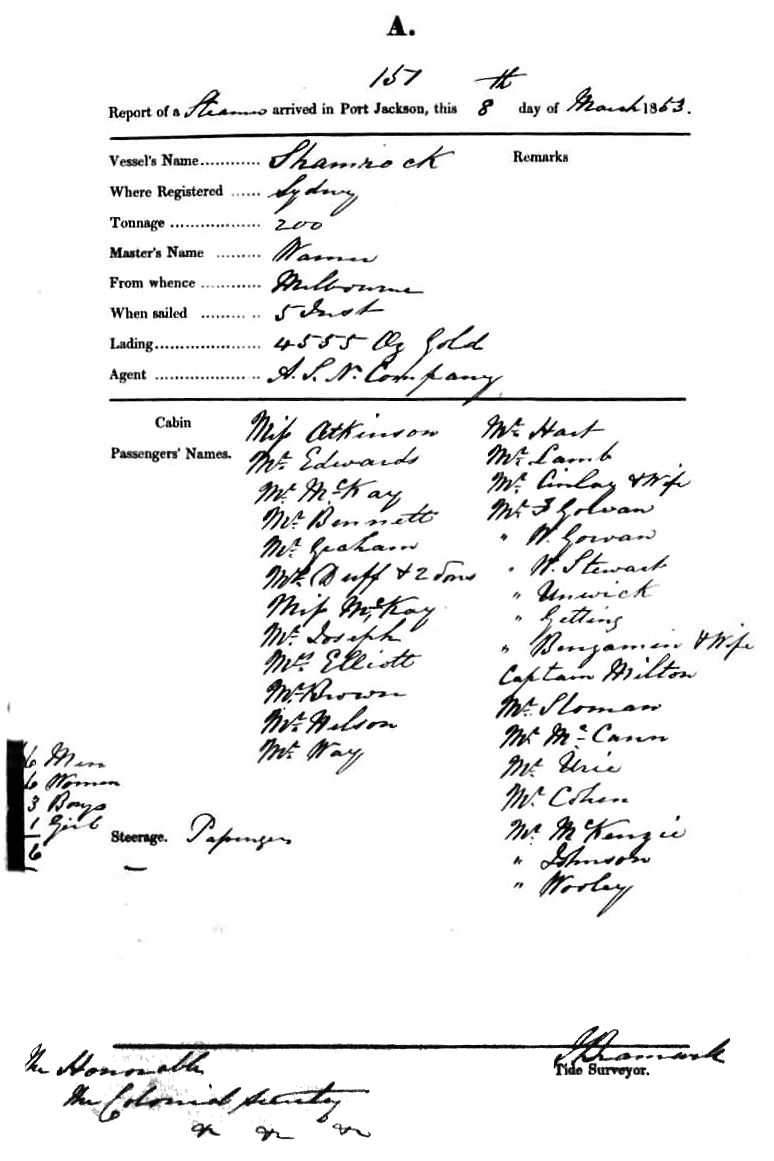 A.
151
th
Report of a Steamer arrived in Port Jackson, this 8 day of March 1853.
Vessel's Name............ Shamrock
Remarks
Where Registered ...... Sydney
Tonnage .................. 200
Master's Name ......... Warner
From whence ............ Melbourne
When sailed ......... .. 5 Inst
Lading..................... 4555 Oz Gold
Agent .................. .. A. S. N. Company
Cabin
Passengers' Names.
Miss Atkinson
Mr. Edwards
Mr. McKay
Mr. Bennett
Mr. Graham
Mrs. Duff & 2 Sons
Miss McKay
Mr. Joseph
Mrs. Elliott
Mr. Brown
Mr. Nelson
Mr. Way
Mr. Hart
Mr. Lamb
Mr. & Wife
Mr. F Golvan
" W. Gowan
" W. Stewart
" Unwick
" Getting
" Bengamin & Wife
Captain Milton
Mr. Sloman
Mr. McCann
Mr. Urie
Mr. Cohen
Mr. McKenzie
" Johnson
" Wooley
6 Men
6 Women
3 Boys
1 Girl
6
Steerage. Passengers
Tide Surveyor.
The Honorable
The Colonial Secretary
&c &c &c